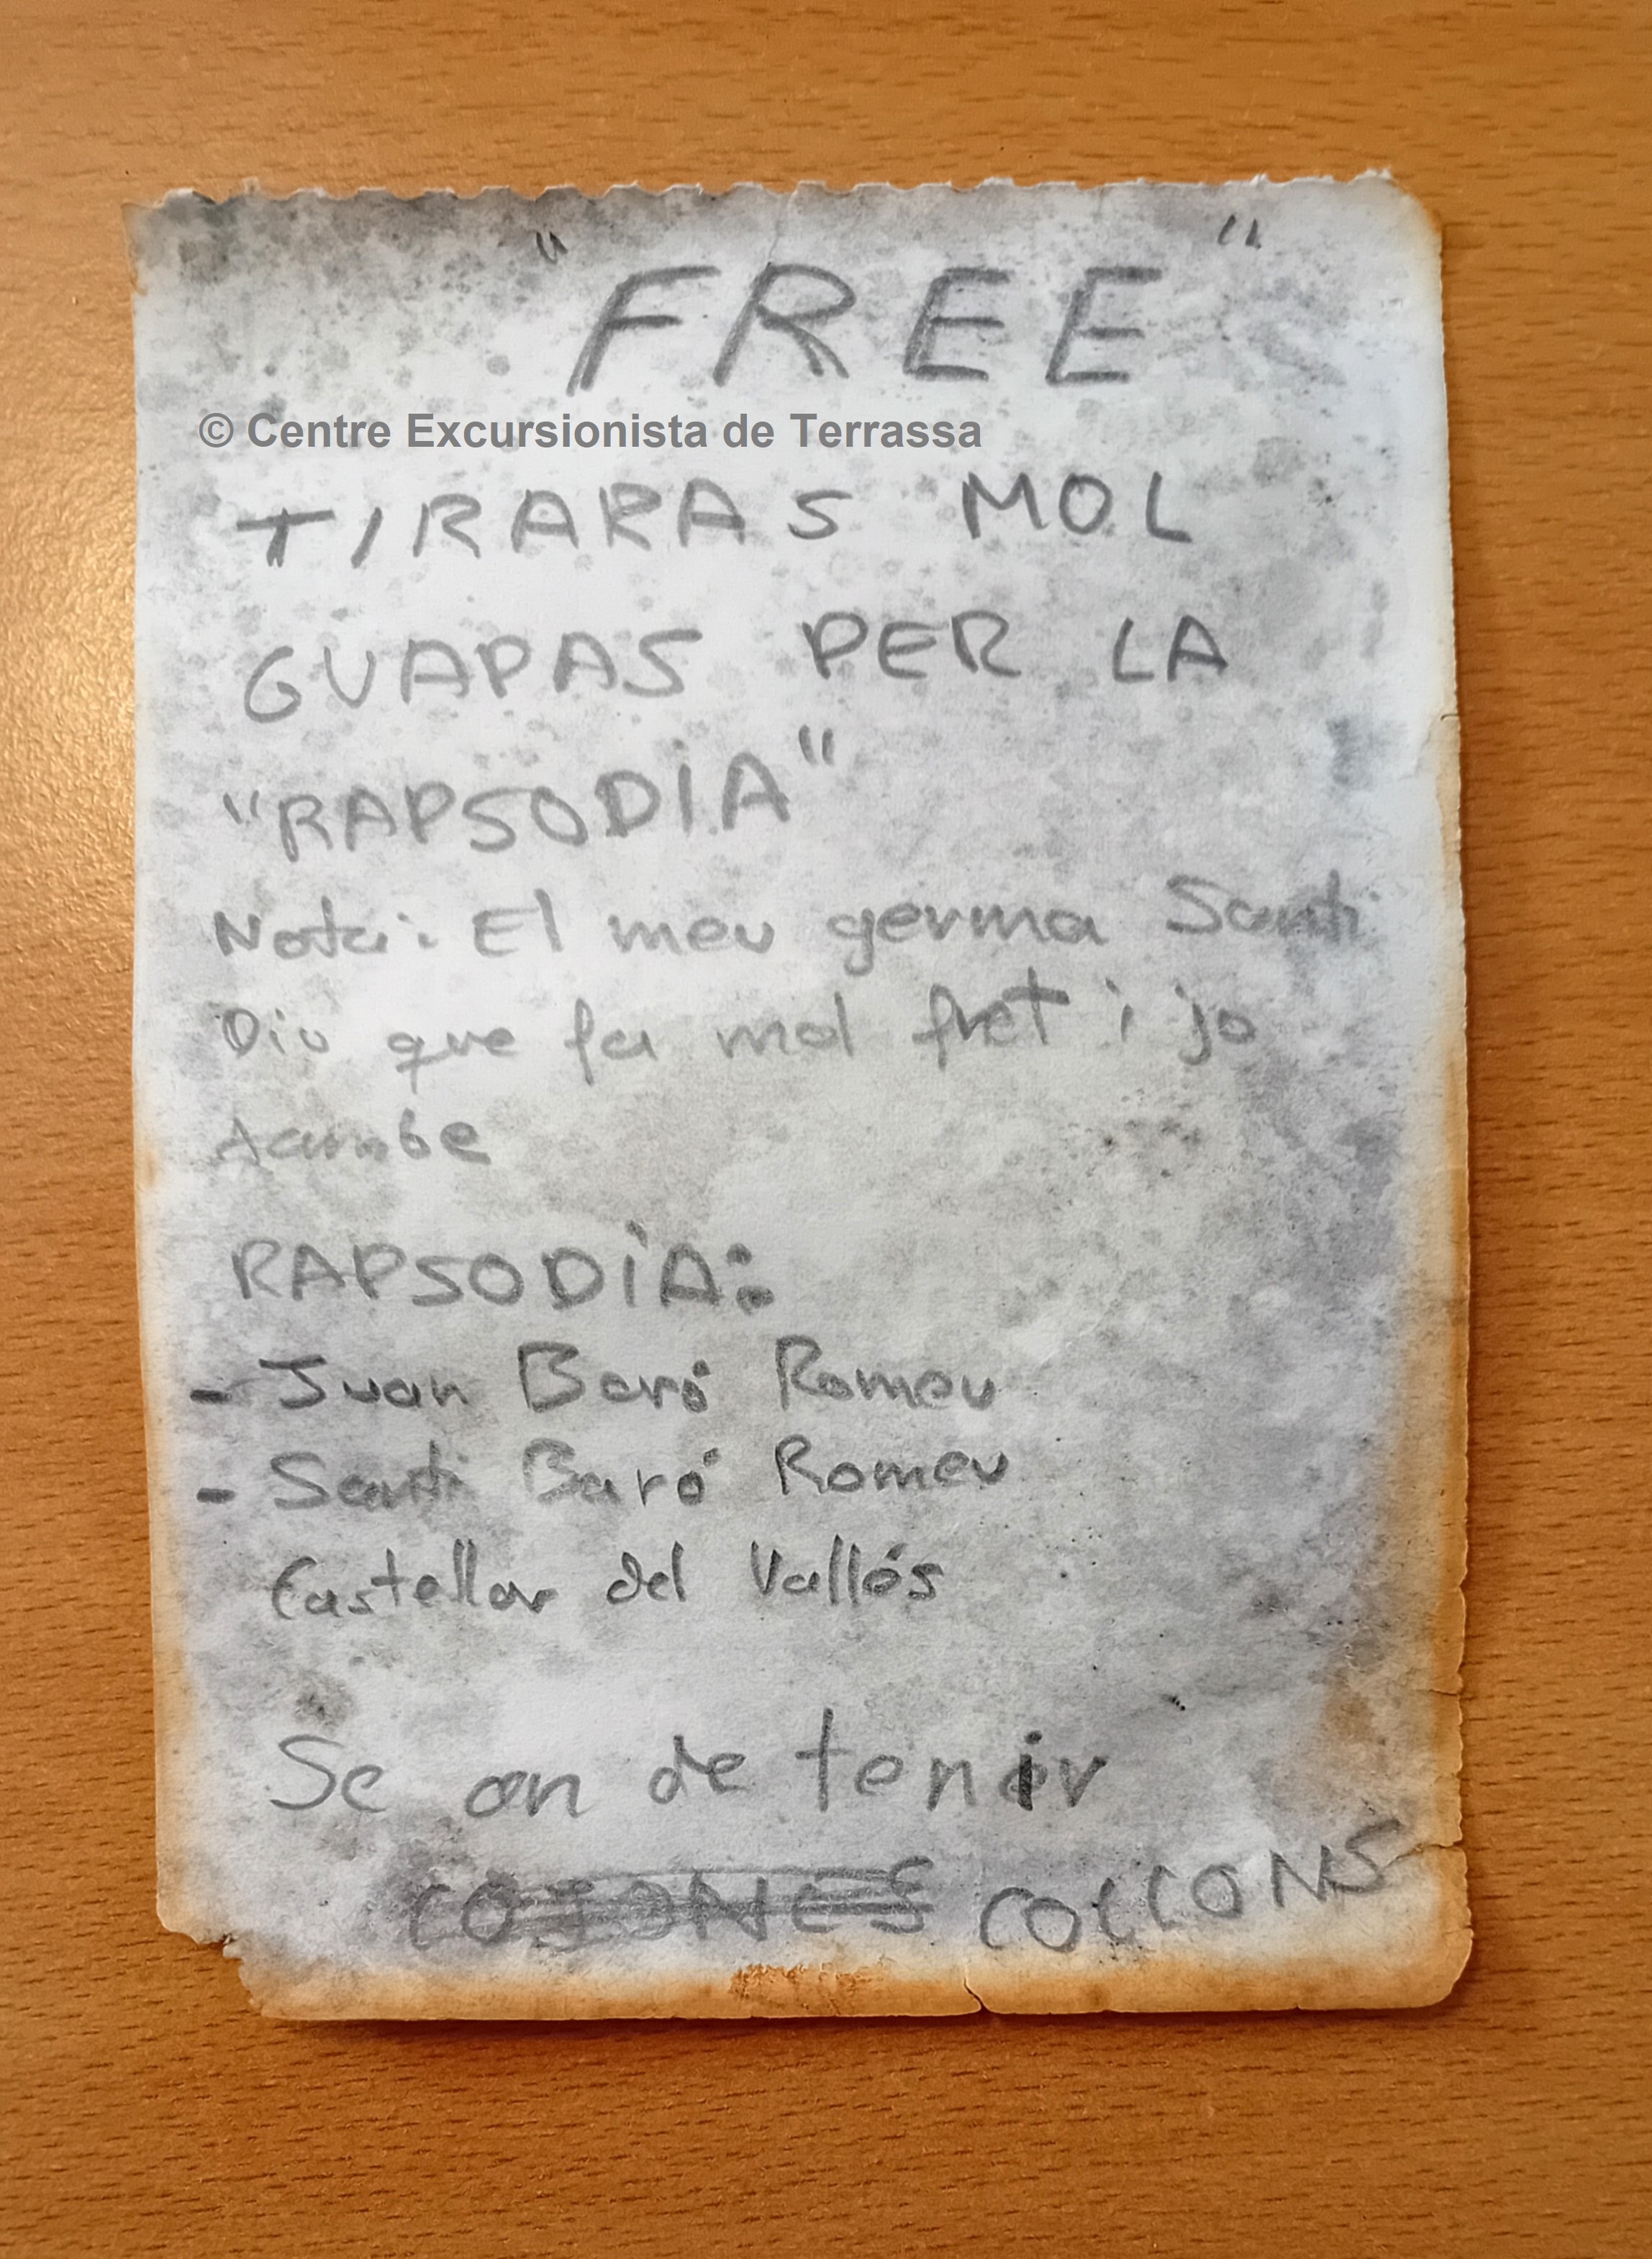 "FREE"
© Centre Excursionista de Terrassa
TIRARAS MOL
GUAPAS PER LA
"RAPSODIA"
Nota: El meu germa Santi
Diu que fa mol fret i jo
tambe
RAPSODIA:
- Juan Baró Romeu
- Santi Baró Romeu
Castellar del Vallés
Se an de tenir
COJONES COLLONS